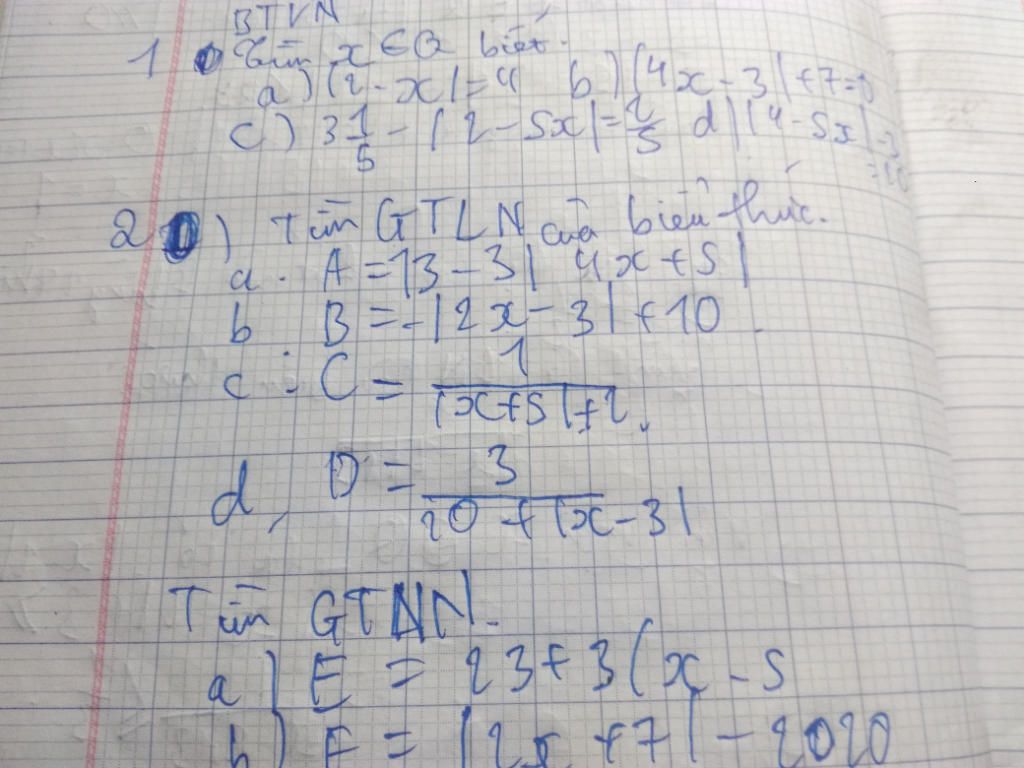 BTVN
1 Tìm x ∈ Q biết.
a) |2 - x| = 4 b) |4x - 3| + 7 = 0
c) 3 1/5 - |2 - 5x| = 2/5 d) |4 - 5x|
2) Tìm GTLN của biểu thức.
a. A = 13 - 3| 4x + 5 |
b B = -|2x - 3| + 10
c. C = 1/(|x + 5| + 2).
d, D = 3/(20 + |x - 3|
Tìm GTNN.
a) E = 23 + 3(x - 5
b) F = |2x + 7| - 2020